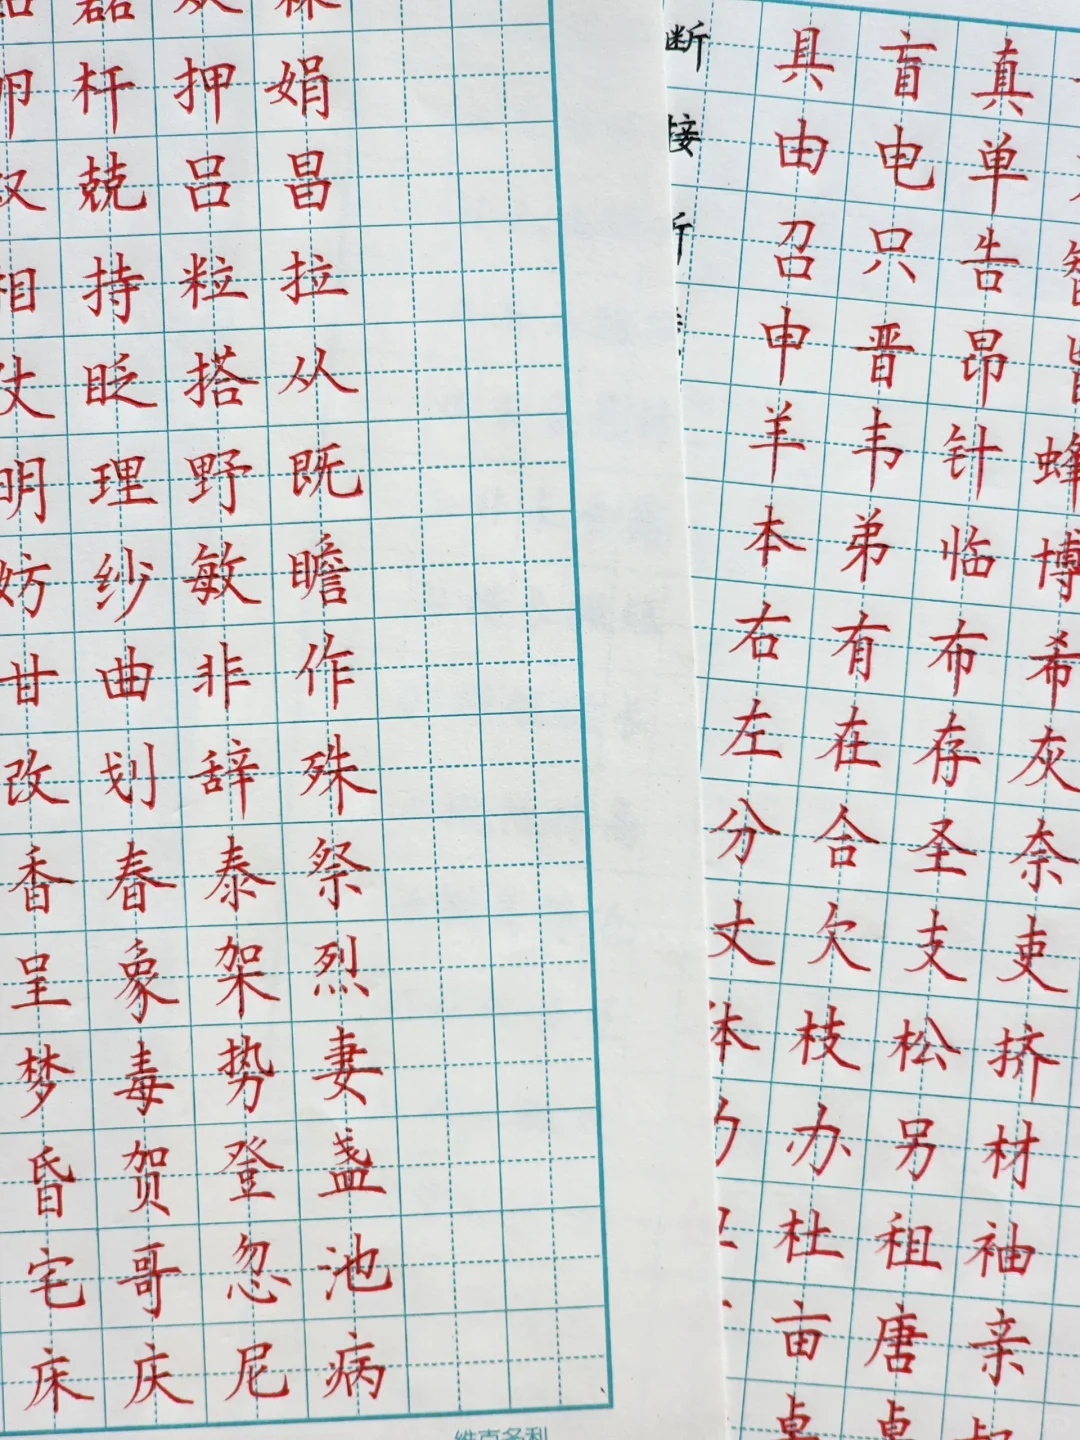 杆 押 娟
兢 吕 昌
相 持 粒 拉
丈 眨 搭 从
明 理 野 既
妨 纱 敏 瞻
甘 曲 非 作
改 划 辞 殊
香 春 泰 祭
呈 象 架 烈
梦 毒 势 妻
昏 贺 登 盏
宅 哥 忽 池
床 庆 尼 病
断 具 盲 真
接 由 电 单
召 只 告
申 晋 昂
羊 韦 针 蜂
本 弟 临 博
右 有 布 希
左 在 存 灰
分 合 圣 奈
丈 欠 支 吏
体 枝 松 挤
办 另 材
杜 租 袖
亩 唐 亲